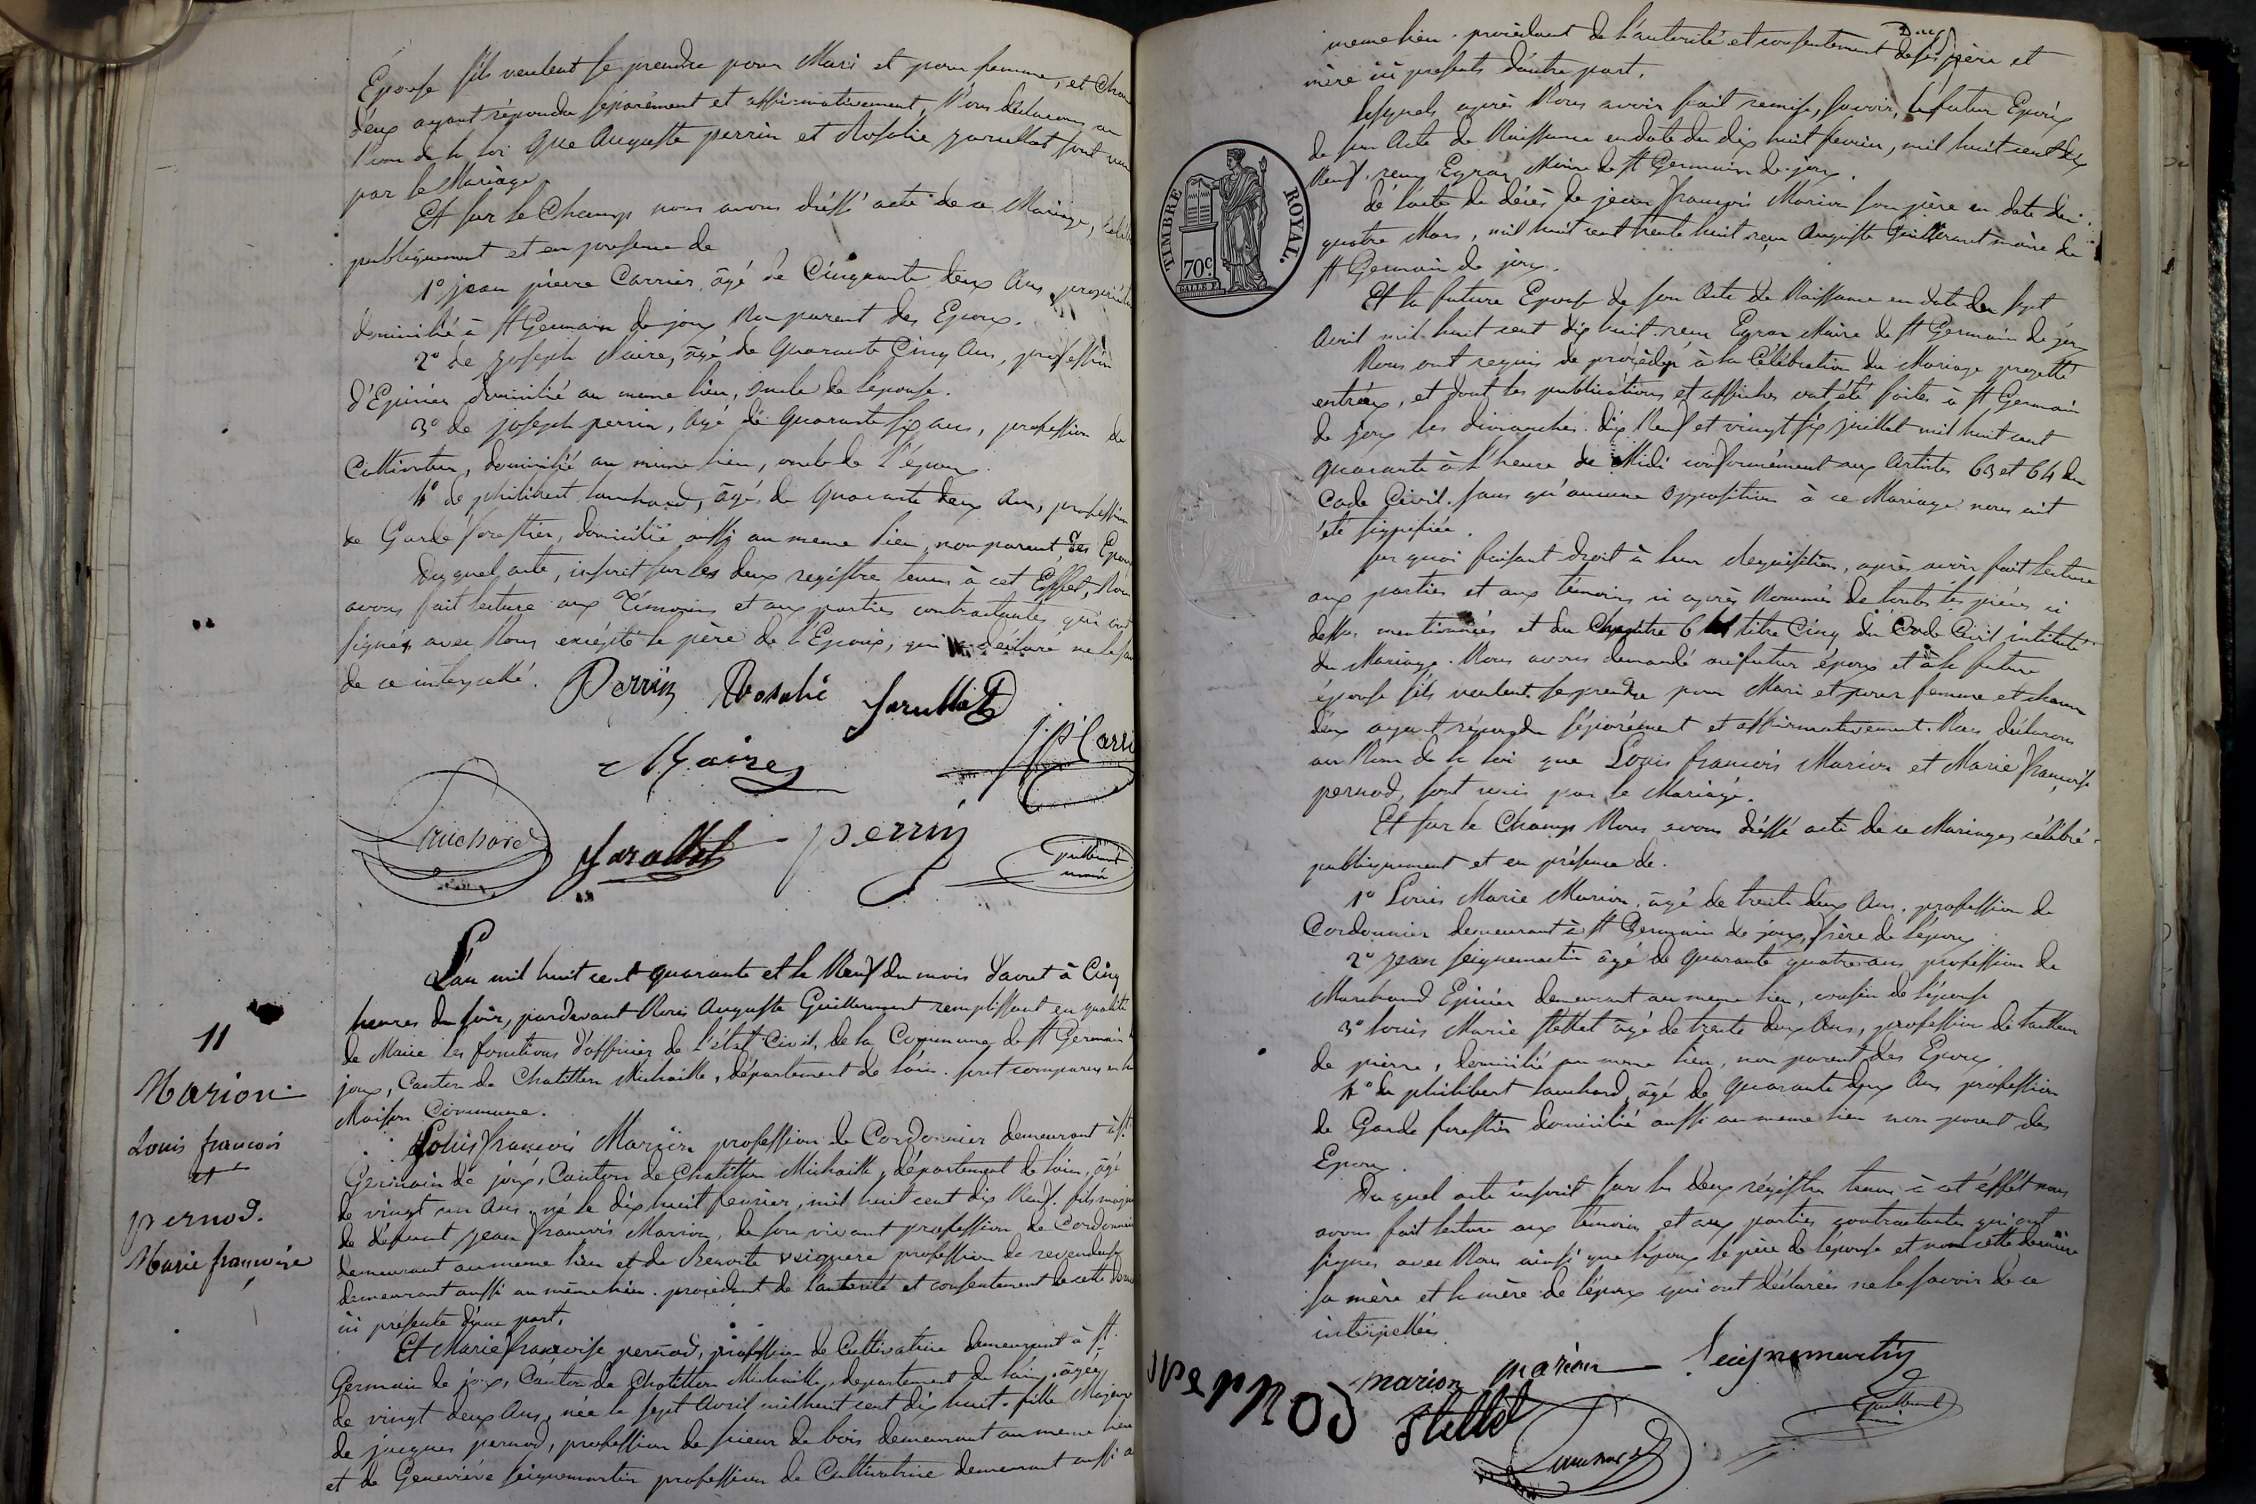 Epouse s'ils veulent se prendre pour Mari et pour femme, et chac
d'eux ayant répondu séparément et affirmativement, Nous déclarons au
Nom de la loi que Auguste perrin et Rosalie jarullat sont unis
par le Mariage.
Et sur le Champ nous avons dréssé acte de ce Mariage, célébr
publiquement et en presence de
1° jean pierre Carrier, âgé de Cinquante deux Ans, propriét
domicilié à St Germain de joux Non parent des Epoux.
2° de joseph Maire, âgé de quarante Cinq Ans, profession
d'Epicier domicilié au meme lieu, oncle de l'epouse.
3° de joseph perrin, âgé de quarante six ans, profession de
Cultivateur, domicilié au meme lieu, oncle de l'epoux.
4° de philibert Louchard, âgé de quarante deux Ans, profession
de Garde forestier, domicilié aussi au meme lieu, non parent des Epoux
Du quel acte, inscrit sur les deux registre tenus à cet Effet, Nous
avons fait lecture aux Témoins et aux parties contractantes qui ont
signés avec Nous excépté le père de l'Epoux, qui a déclaré ne le sav
de ce interpellé. Perrin Rosalie Jarullat
J. P. Carri
Maire
Jarullat perrin
Guillermet
maire
L'an mil huit cent quarante et le Neuf du mois d'aout à Cinq
heures du soir, pardevant Nous Auguste Guillermet remplissant en qualité
de Maire les fonctions d'officier de l'état Civil, de la Commune de St Germain
joux, Canton de Chatillon Michaille, département de l'ain. sont comparus en la
Maison Commune.
11
Marion
Louis francois
et
pernod.
Marie francoise
Louis francois Marion profession de Cordonnier demeurant à St
Germain de joux, Canton de Chatillon Michaille, département de l'ain, âgé
de vingt un Ans, né le dix huit fevrier, mil huit cent dix Neuf. fils majeur
de défunt jean francois Marion, de son vivant profession de Cordonnier
demeurant au meme lieu et de Benoite profession de revendeuse
demeurant aussi au même lieu. procédant de l'autorité et consentement de cette dern
ici présente d'une part,
Et Marie francoise pernod, profession de Cultivatrice demeurant à St
Germain de joux, Canton de Chatillon Michaille, departement de l'ain, âgée
de vingt deux Ans, née le sept Avril mil huit cent dix huit. fille Majeure
de jacques pernod, profession de scieur de bois demeurant au meme lieu
et de Geneviève seignemartin profession de Cultivatrice demeurant aussi a
meme lieu. procédant de l'autorité et consentement de ses père et
mère ici presents d'autre part.
Lesquels après Nous avoir fait remise, savoir, le futur Epoux
de son Acte de Naissance en date du dix huit fevrier, mil huit cent dix
Neuf. reçu Egraz Maire de St Germain de joux.
de l'acte de décès de jean françois Marion son père en date du
quatre Mars, mil huit cent trente huit reçu Auguste Guillermet maire de
St Germain de joux.
TIMBRE ROYAL.
70c
Et la future Epouse de son Acte de Naissance en date du Sept
Avril mil huit cent dix huit. reçu Egraz Maire de St Germain de joux
Nous ont requis de procéder à la Célébration du Mariage projetté
entr'eux, et dont les publications et affiches ont été faites à St Germain
de joux les dimanches dix Neuf et vingt six juillet mil huit cent
quarante à l'heure de Midi conformément aux Articles 63 et 64 du
Code Civil. sans qu'aucune opposition à ce Mariage nous ait
été signifiée.
sur quoi faisant droit à leur Requisition, après avoir fait lecture
aux parties et aux témoins ci après Nommés de toutes les pièces ci
dessus mentionnées et du Chapitre 6 titre Cinq du Code Civil intitulé
du Mariage. Nous avons demandé au futur époux et à la future
épouse s'ils veulent se prendre pour Mari et pour femme et chacun
d'eux ayant répondu séparément et affirmativement. Nous déclarons
au Nom de la loi que Louis francois Marion et Marie françoise
pernod, sont unis par le Mariage.
Et sur le Champ Nous avons dréssé acte de ce Mariage, célébré
publiquement et en présence de.
1° Louis Marie Marion, âgé de trente deux Ans. profession de
Cordonnier demeurant à St Germain de joux, frère de l'époux
2° jean seignemartin âgé de quarante quatre ans profession de
Marchand Epicier demeurant au meme lieu, cousin de l'épouse
3° Louis Marie Stellet âgé de trente deux Ans, profession de tailleur
de pierre, domicilié au meme lieu, non parent des Epoux
4° de philibert Louchard, âgé de quarante deux Ans profession
de Garde forestier domicilié aussi au meme lieu non parent des
Epoux.
Du quel acte inscrit sur les deux régistre tenus à cet éffet nous
avons fait lecture aux témoins et aux parties contractantes qui ont
signés avec Nous ainsi que l'époux le père de l'épouse et non cette dernière
sa mère et la mère de l'époux qui ont déclarées ne le savoir de ce
interpellées
pernod marion marion Seignemartin
Stellet
Guillermet